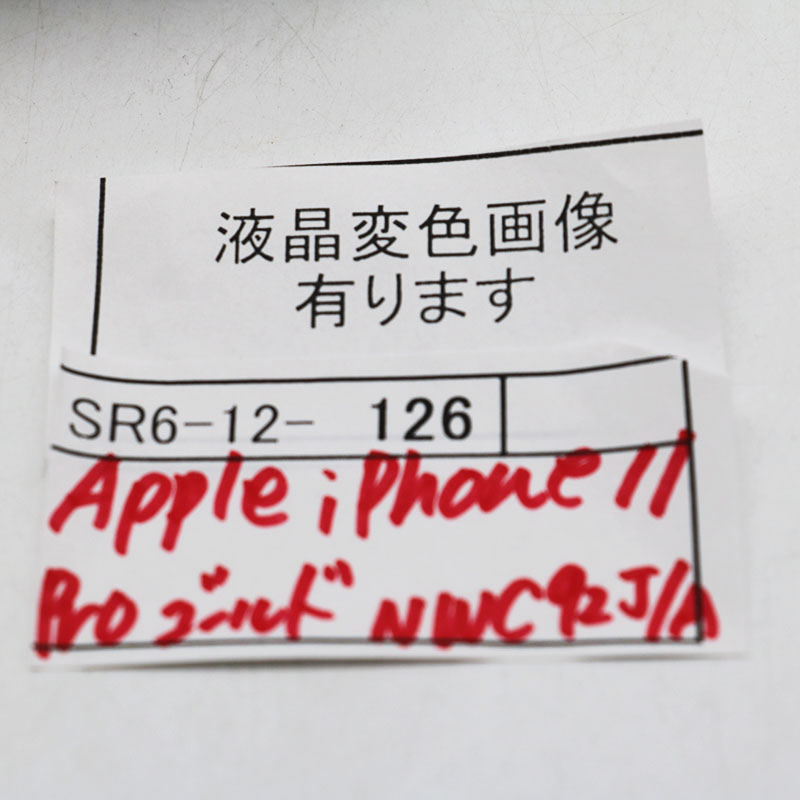 液晶変色画像
有ります
SR6-12- 126
Apple iPhone 11
Pro ゴールド NWC92J/A